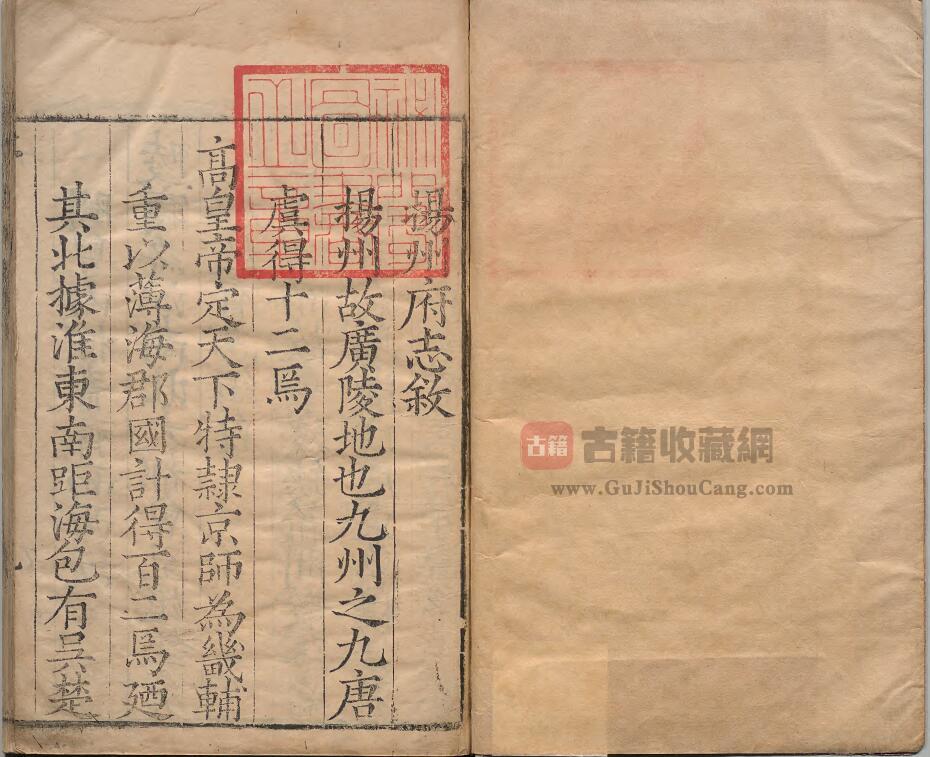 揚州府志敘
揚州故廣陵地也九州之九唐
虞得十二焉
高皇帝定天下特隷京師為畿輔
重以薄海郡國計得百二焉廼
其北據淮東南距海包有吳楚
古籍
古籍收藏網
www.GuJiShouCang.com